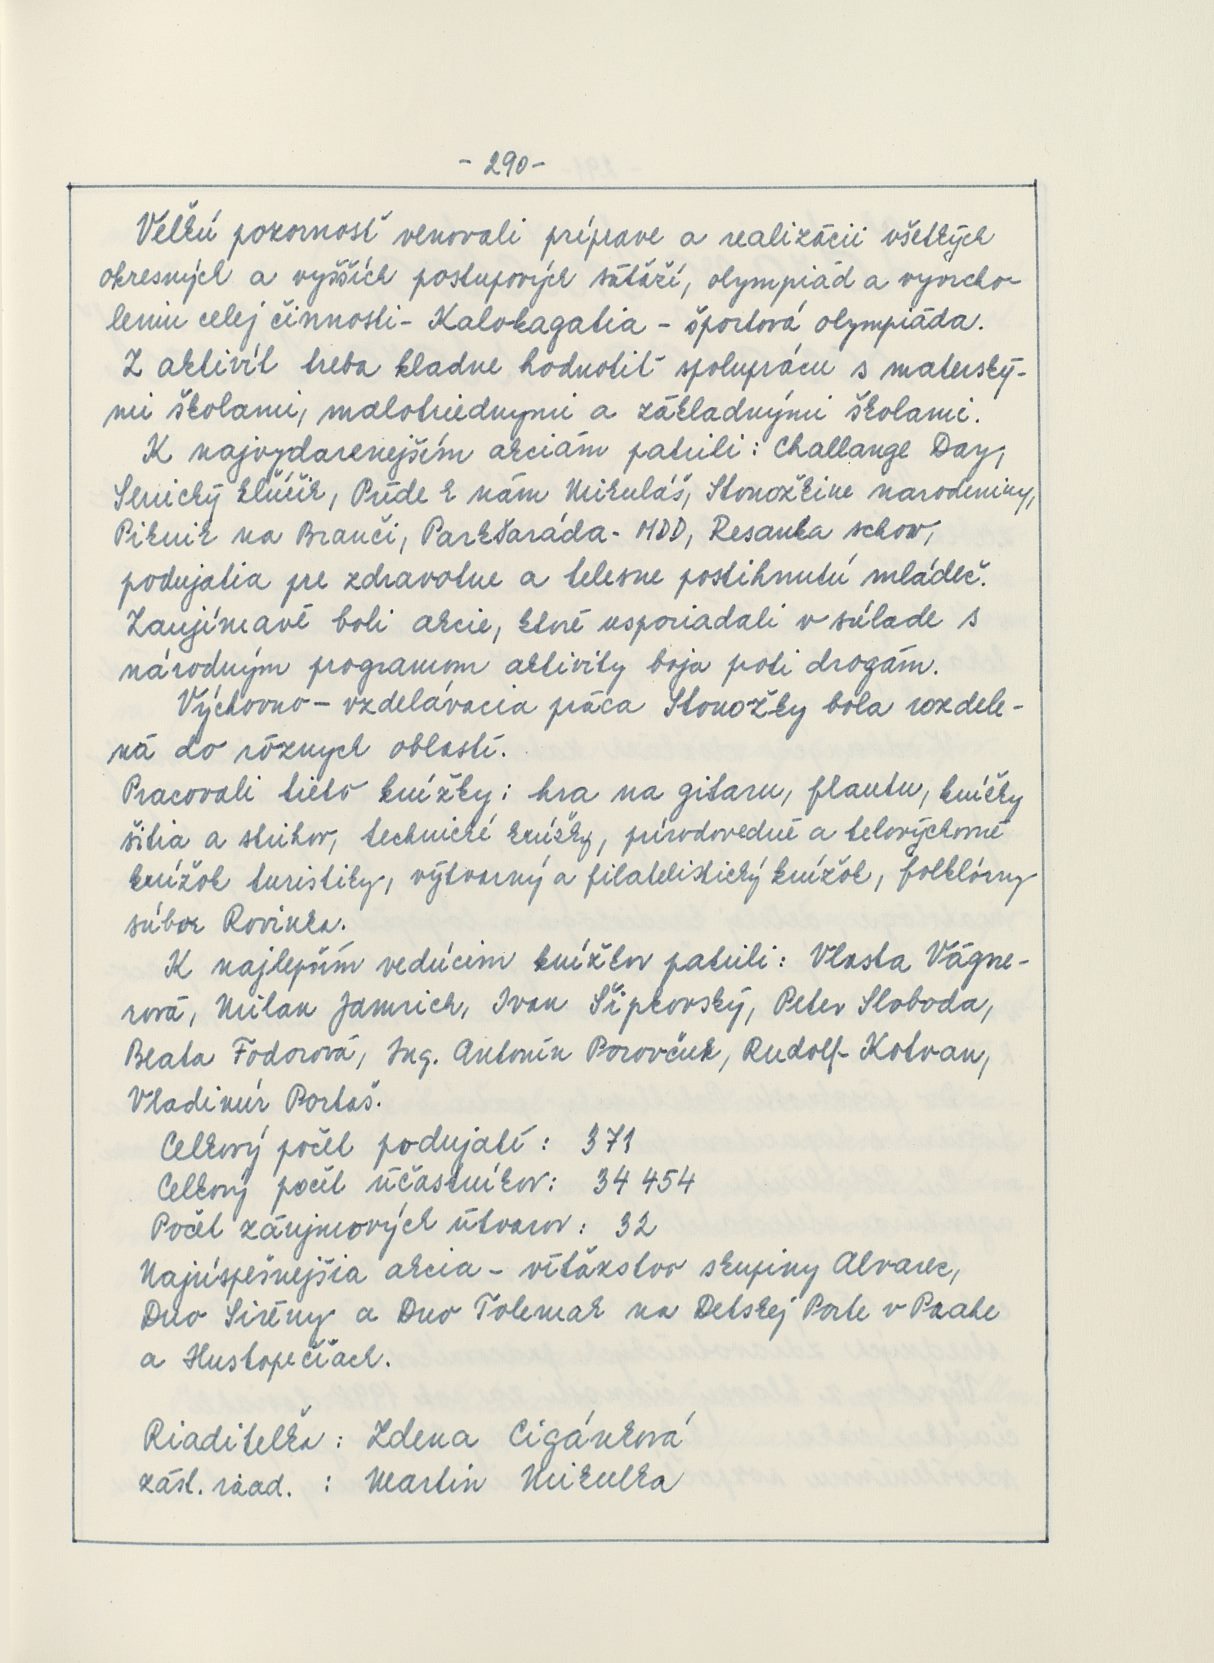 - 290 -
Veľkú pozornosť venovali príprave a realizácii všetkých
okresných a vyšších postupových súťaží, olympiád a vyvrcho-
leniu celej činnosti - Kalokagatia - športová olympiáda.
Z aktivít treba kladne hodnotiť spoluprácu s materský-
mi školami, malotriednymi a základnými školami.
K najvydarenejším akciám patrili: Challange Day,
Senický kľúčik, Príde k nám Mikuláš, Stonožkine narodeniny,
Piknik na Branči, Parkšaráda - MDD, Resanka schow,
podujatia pre zdravotne a telesne postihnutú mládež.
Zaujímavé boli akcie, ktoré usporiadali v súlade s
národným programom aktivity boja proti drogám.
Výchovno - vzdelávacia práca Stonožky bola rozdele-
ná do rôznych oblastí.
Pracovali tieto krúžky: hra na gitaru, flautu, krúžky
šitia a strihov, technické krúžky, prírodovedné a telovýchovné
krúžok turistiky, výtvarný a filatelistický krúžok, folklórny
súbor Rovinka.
K najlepším vedúcim krúžkov patrili: Vlasta Vágne-
rová, Milan Jamrich, Ivan Šípkovský, Peter Sloboda,
Beata Fodorová, Ing. Antonín Porovčuk, Rudolf Kotvan,
Vladimír Portaš.
Celkový počet podujatí: 371
Celkový počet účastníkov: 34 454
Počet záujmových útvarov: 32
Najúspešnejšia akcia - víťazstvo skupiny Alvarec,
Duo Sirény a Duo Tolemak na Detskej Porte v Prahe
a Hustopečiach.
Riaditeľka: Zdena Cigánková
zást. riad. : Martin Mikulka